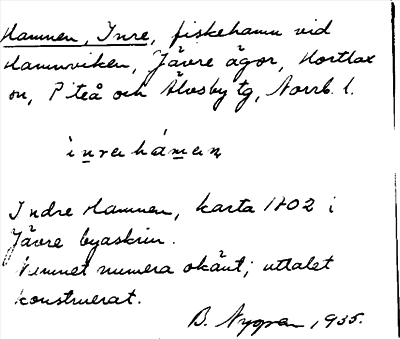 Hamnen, Inre, fiskehamn vid
Hamnviken, Jävre ägor, Hortlax
sn, Piteå och Älvsby tg, Norrb. l.
inrahámen
Indre Hamnen, karta 1802 i
Jävre byaskrin.
Namnet numera okänt; uttalet
konstruerat.
B. Nygren, 1935.